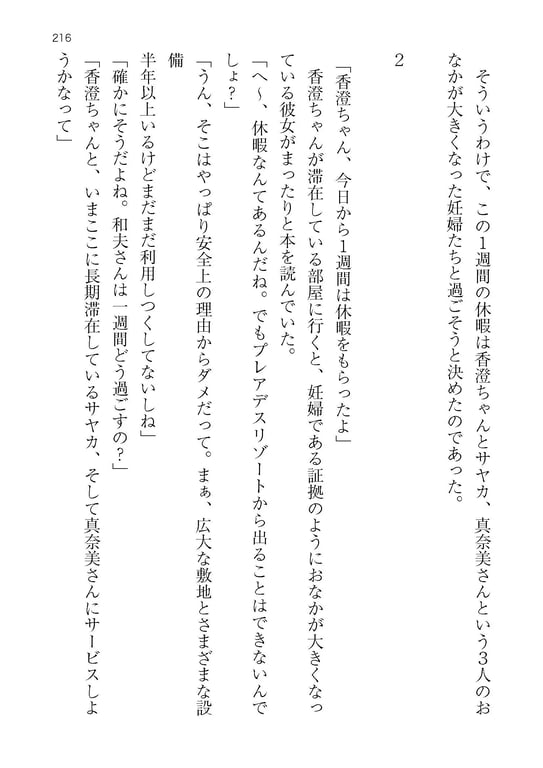 216
そういうわけで、この１週間の休暇は香澄ちゃんとサヤカ、真奈美さんという３人のお
なかが大きくなった妊婦たちと過ごそうと決めたのであった。
２
「香澄ちゃん、今日から１週間は休暇をもらったよ」
香澄ちゃんが滞在している部屋に行くと、妊婦である証拠のようにおなかが大きくなっ
ている彼女がまったりと本を読んでいた。
「へ～、休暇なんてあるんだね。でもプレアデスリゾートから出ることはできないんで
しょ？」
「うん、そこはやっぱり安全上の理由からダメだって。まぁ、広大な敷地とさまざまな設
備
半年以上いるけどまだまだ利用しつくしてないしね」
「確かにそうだよね。和夫さんは一週間どう過ごすの？」
「香澄ちゃんと、いまここに長期滞在しているサヤカ、そして真奈美さんにサービスしよ
うかなって」